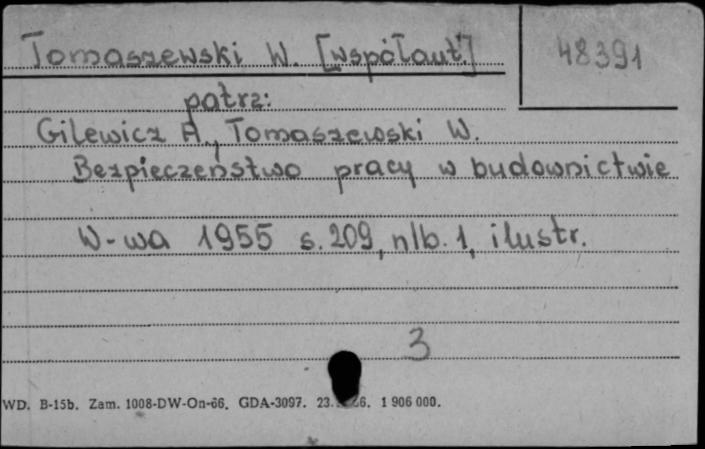 Tomaszewski W. [współaut.]
48391
patrz:
Gilewicz A., Tomaszewski W.
Bezpieczeństwo pracy w budownictwie
W-wa 1955 s. 209, nlb. 1, ilustr.
3
WD. B-15b. Zam. 1008-DW-On-66. GDA-3097. 1 906 000.